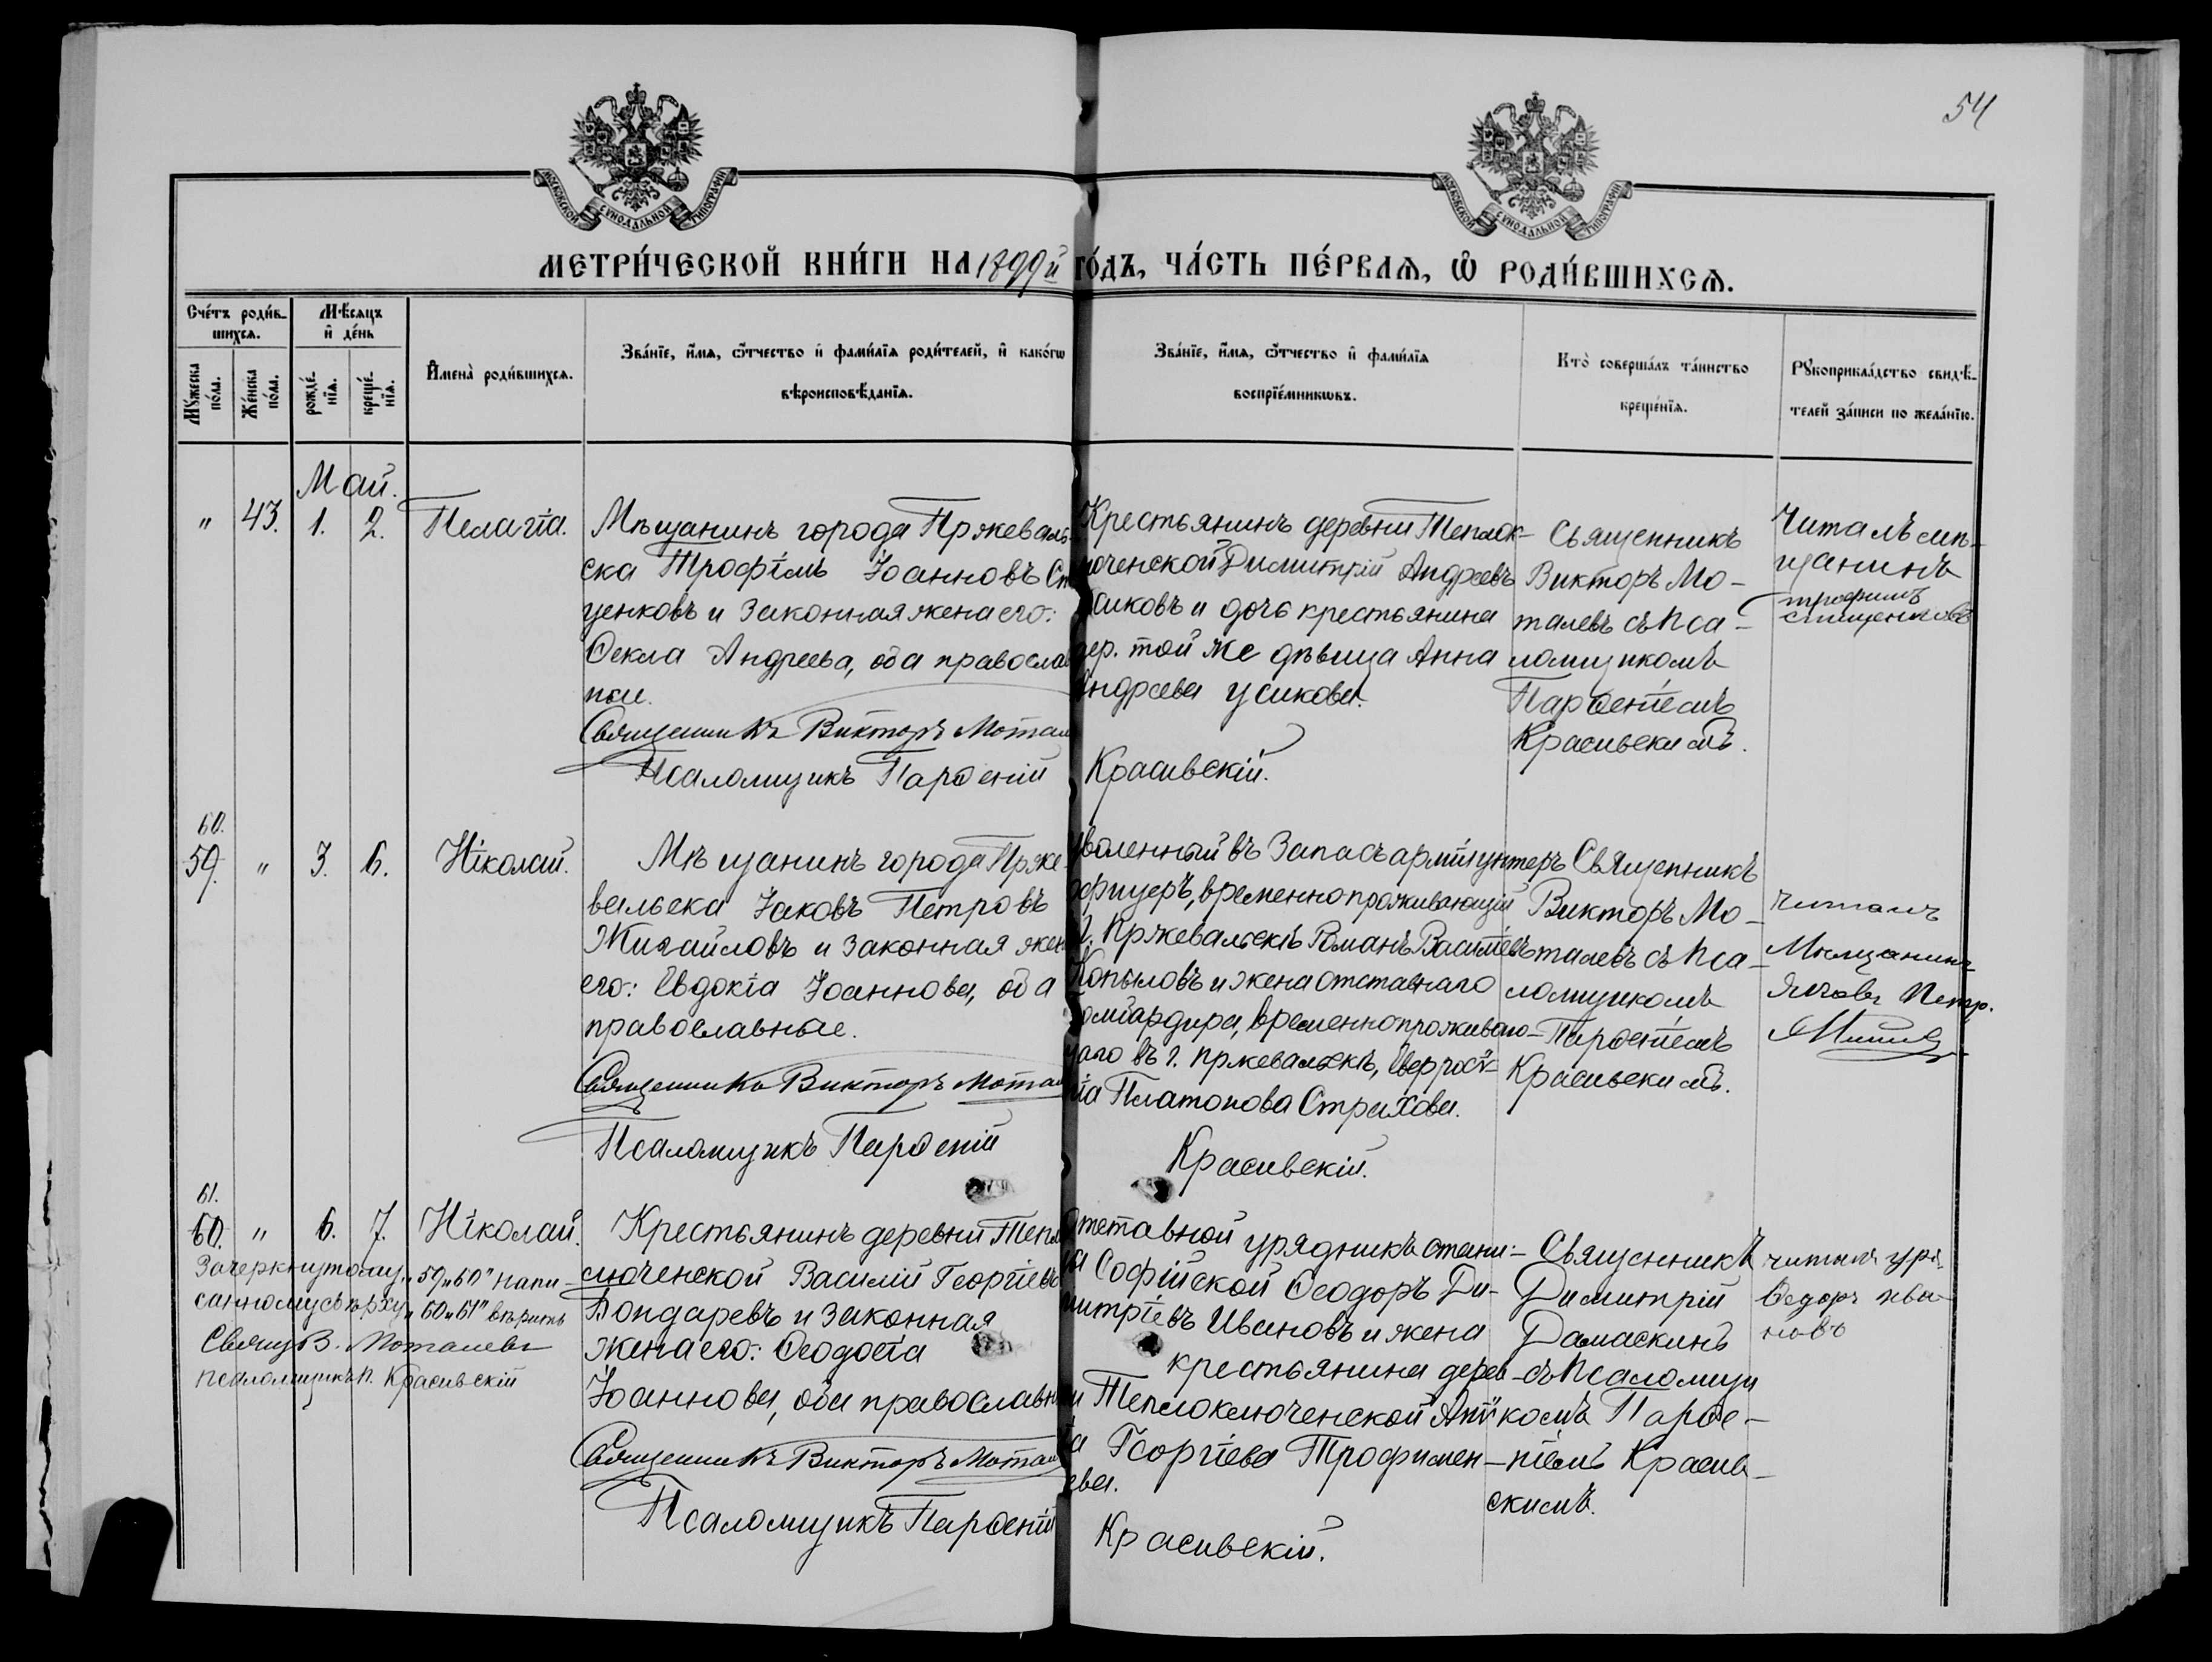 54
МОСКОВСКОЙ СѴНОДАЛЬНОЙ ТИПОГРАФІИ
МОСКОВСКОЙ СѴНОДАЛЬНОЙ ТИПОГРАФІИ
МЕТРИ́ЧЕСКОЙ КНИ́ГИ НА 1899й ГО́ДЪ, ЧА́СТЬ ПЕ́РВАѦ, Ѡ҆ РОДИ́ВШИХСѦ.
Сче́тъ роди́в-
шихсѧ.
Мѣ́сѧцъ
и҆ де́нь
Мꙋ́жеска
по́ла.
Же́нска
по́ла.
рожде́-
нїѧ.
креще́-
нїѧ.
И҆мена̀ роди́вшихсѧ.
Зва́нїе, и҆́мѧ, ѻ҆́тчество и҆ фами́лїѧ роди́телей, и҆ како́гѡ
вѣроисповѣ́данїѧ.
Зва́нїе, и҆́мѧ, ѻ҆́тчество и҆ фами́лїѧ
воспрїе́мникѡвъ.
Кто̀ соверша́лъ та́инство
креще́нїѧ.
Рꙋкоприкла́дство свидѣ́-
телей за́писи по жела́нїю.
Май.
" 43. 1. 2. Пелагіа.
Мѣщанинъ города Пржеваль-
ска Трофімъ Іоанновъ Сп
ценковъ и законная жена его:
Ѳекла Андреева, оба православ
ные.
Священникъ Викторъ Мотал
Псаломщикъ Парѳеній
Крестьянинъ деревни Теплок-
люченской Димитрій Андреевъ
Усиковъ и дочь крестьянина
дер. той же дѣвица Анна
Андреева Усикова.
Красивскій.
Священникъ
Викторъ Мо-
талевъ съ Пса-
ломщикомъ
Парѳеніемъ
Красивскимъ.
Читалъ мѣ-
щанинъ
трофимъ
60.
59. " 3. 6. Ніколай.
Мѣщанинъ города Прже-
вальска Іаковъ Петровъ
Михайловъ и законная жена
его: Евдокіа Іоаннова, оба
православные.
Священникъ Викторъ Мотал
Псаломщикъ Парѳеній
Уволенный въ Запасъ арміи унтеръ
офицеръ, временно проживающій
г. Пржевальскѣ Романъ Василіевъ
Копыловъ и жена отставнаго
бомбардира, временно проживаю-
щаго въ г. Пржевальскѣ,
Платонова Страхова.
Красивскій.
Священникъ
Викторъ Мо-
талевъ съ Пса-
ломщикомъ
Парѳеніемъ
Красивскимъ.
Читалъ
Мѣщанинъ
Яковъ Петр.
61.
60. " 6. 7. Ніколай.
Зачеркнутому „59 и 60" напи-
санному сверху „60 и 61" вѣрить
Свящ. В. Моталевъ
псаломщикъ П. Красивскій
Крестьянинъ деревни Тепло
ключенской Василій Георгіевъ
Бондаревъ и законная
жена его: Ѳеодосіа
Іоаннова, оба православны
Священникъ Викторъ Мотал
Псаломщикъ Парѳеній
Отставной урядникъ стани-
ца Софійской Ѳеодоръ Ди-
митріевъ Ивановъ и жена
крестьянина дерев-
ни Теплоключенской
Георгіева Трофимен-
кова.
Красивскій.
Священникъ
Димитрій
Дамаскинъ
съ Псаломщи
комъ Парѳе-
ніемъ Красив-
скимъ.
читалъ уря.
Ѳедоръ Ива-
новъ